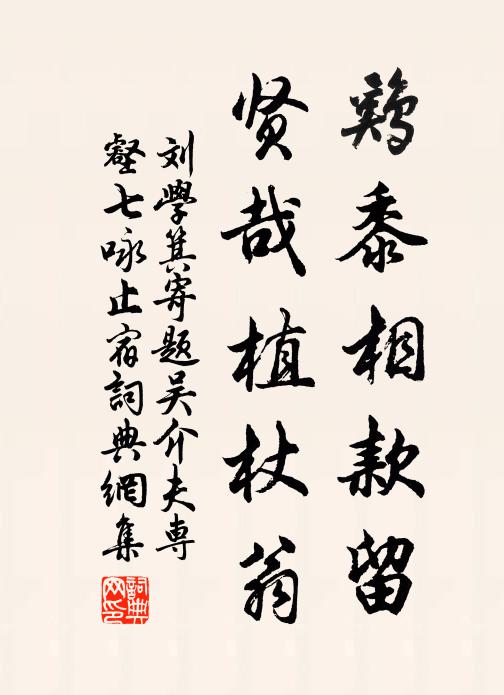 鷄黍相款留
贤哉植杖翁
刘學箕寄题吴介夫専
壑七咏止宿詞典網集
詞典网印